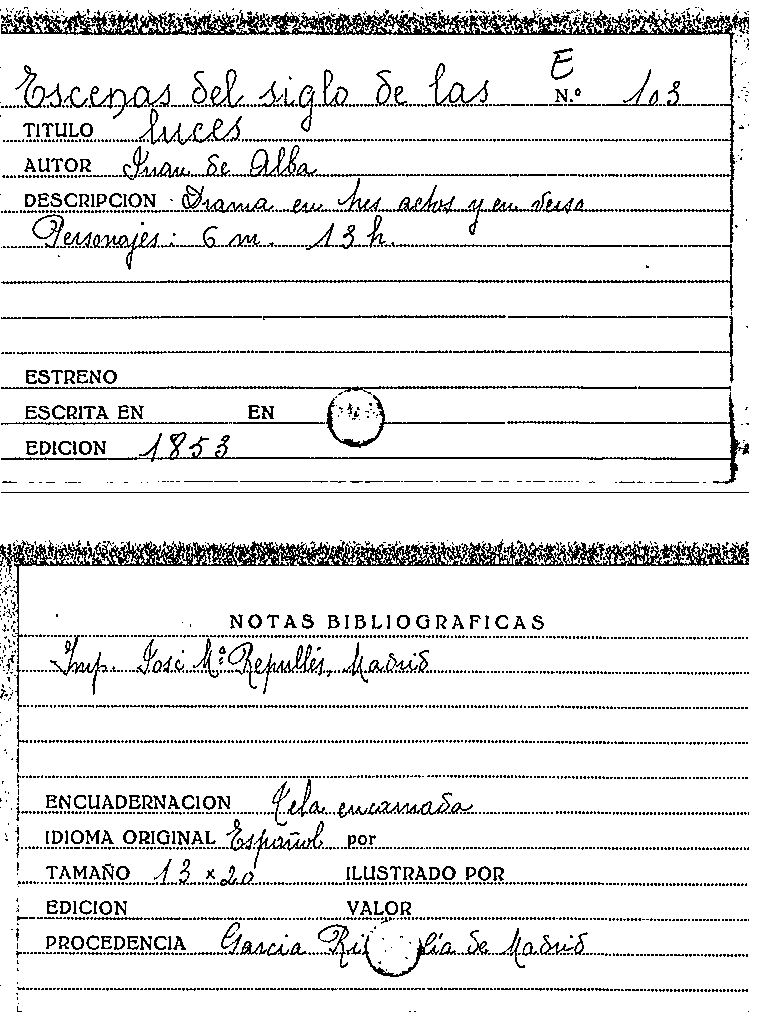 E
Escenas del siglo de las N.º 103
TITULO luces
AUTOR Juan de Alba
DESCRIPCION Drama en tres actos y en verso
Personajes: 6 m. 13 h.
ESTRENO
ESCRITA EN EN
EDICION 1853
NOTAS BIBLIOGRAFICAS
Imp. José Mª Repullés, Madrid
ENCUADERNACION Tela encarnada
IDIOMA ORIGINAL Español por
TAMAÑO 13 x 20 ILUSTRADO POR
EDICION VALOR
PROCEDENCIA Garcia de Madrid